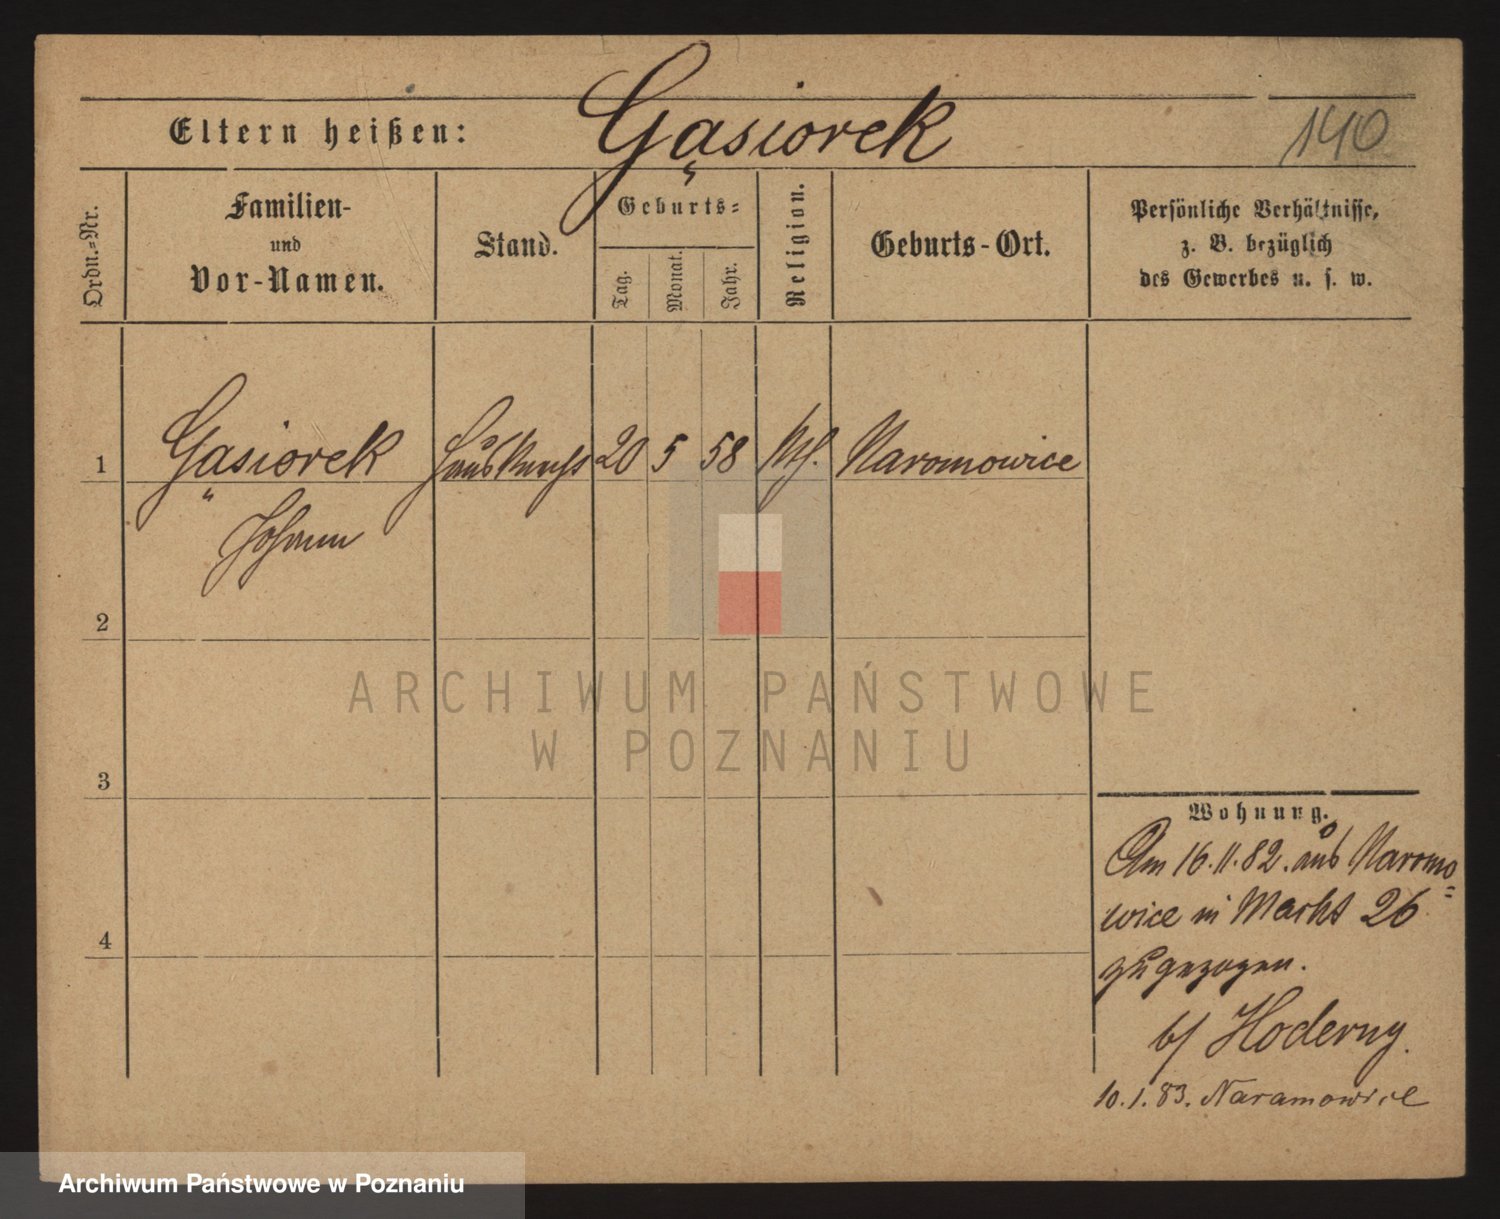 Gąsiorek
Eltern heißen:
140
Ordn.-Nr.
Familien-
und
Vor-Namen.
Stand.
Geburts-
Tag.
Monat.
Jahr.
Religion.
Geburts-Ort.
Persönliche Verhältnisse,
z. B. bezüglich
des Gewerbes u. s. w.
1
Gąsiorek
Johann
Hausknecht
20
5
58
kth.
Naromowice
2
3
4
Wohnung.
Am 16.11.82. aus Naromo=
wice in Markt 26
zugezogen.
b/ Hoderny.
10.1.83. Naramowice
ARCHIWUM PAŃSTWOWE
W POZNANIU
Archiwum Państwowe w Poznaniu